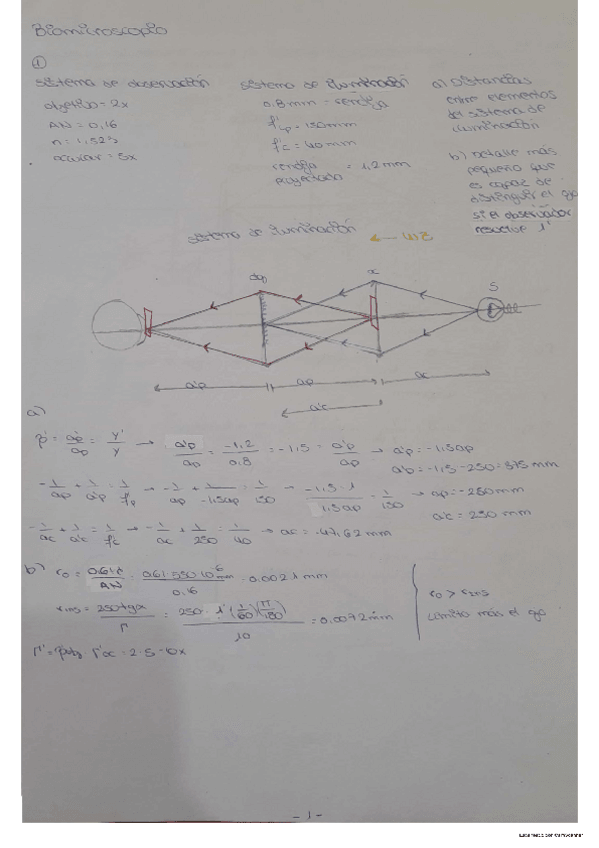 Biomicroscopio
①
sistema de observación
objetivo = 2x
AN = 0,16
n = 1,523
ocular = 5x
sistema de iluminación
0.8 mm = rendija
f'p = 150 mm
f'c = 40 mm
rendija proyectada = 1,2 mm
a) Distancias
entre elementos
del sistema de
iluminación
b) Detalle más
pequeño que
es capaz de
distinguir el
si el observador
resuelve 1'
sistema de iluminación
← luz
S
a'p
ap
ac
a'c
a)
β' = a'p/ap = y'/y → a'p/ap = -1,2/0.8 = -1,5 = a'p/ap → a'p = -1,5ap
a'p = -1,5·-250 = 375 mm
-1/ap + 1/a'p = 1/f'p → -1/ap + 1/-1,5ap = 1/150 → -1,5-1/1,5ap = 1/150 → ap = -250 mm
a'c = 250 mm
-1/ac + 1/a'c = 1/f'c → -1/ac + 1/250 = 1/40 → ac = -47,62 mm
b) r0 = 0,61λ/AN = 0,61·550·10⁻⁶ mm/0.16 = 0.0021 mm
= 250·1'(1/60)(π/180)/10 = 0.0072 mm
= 2·5 = 10x
Limita más el
- 1 -